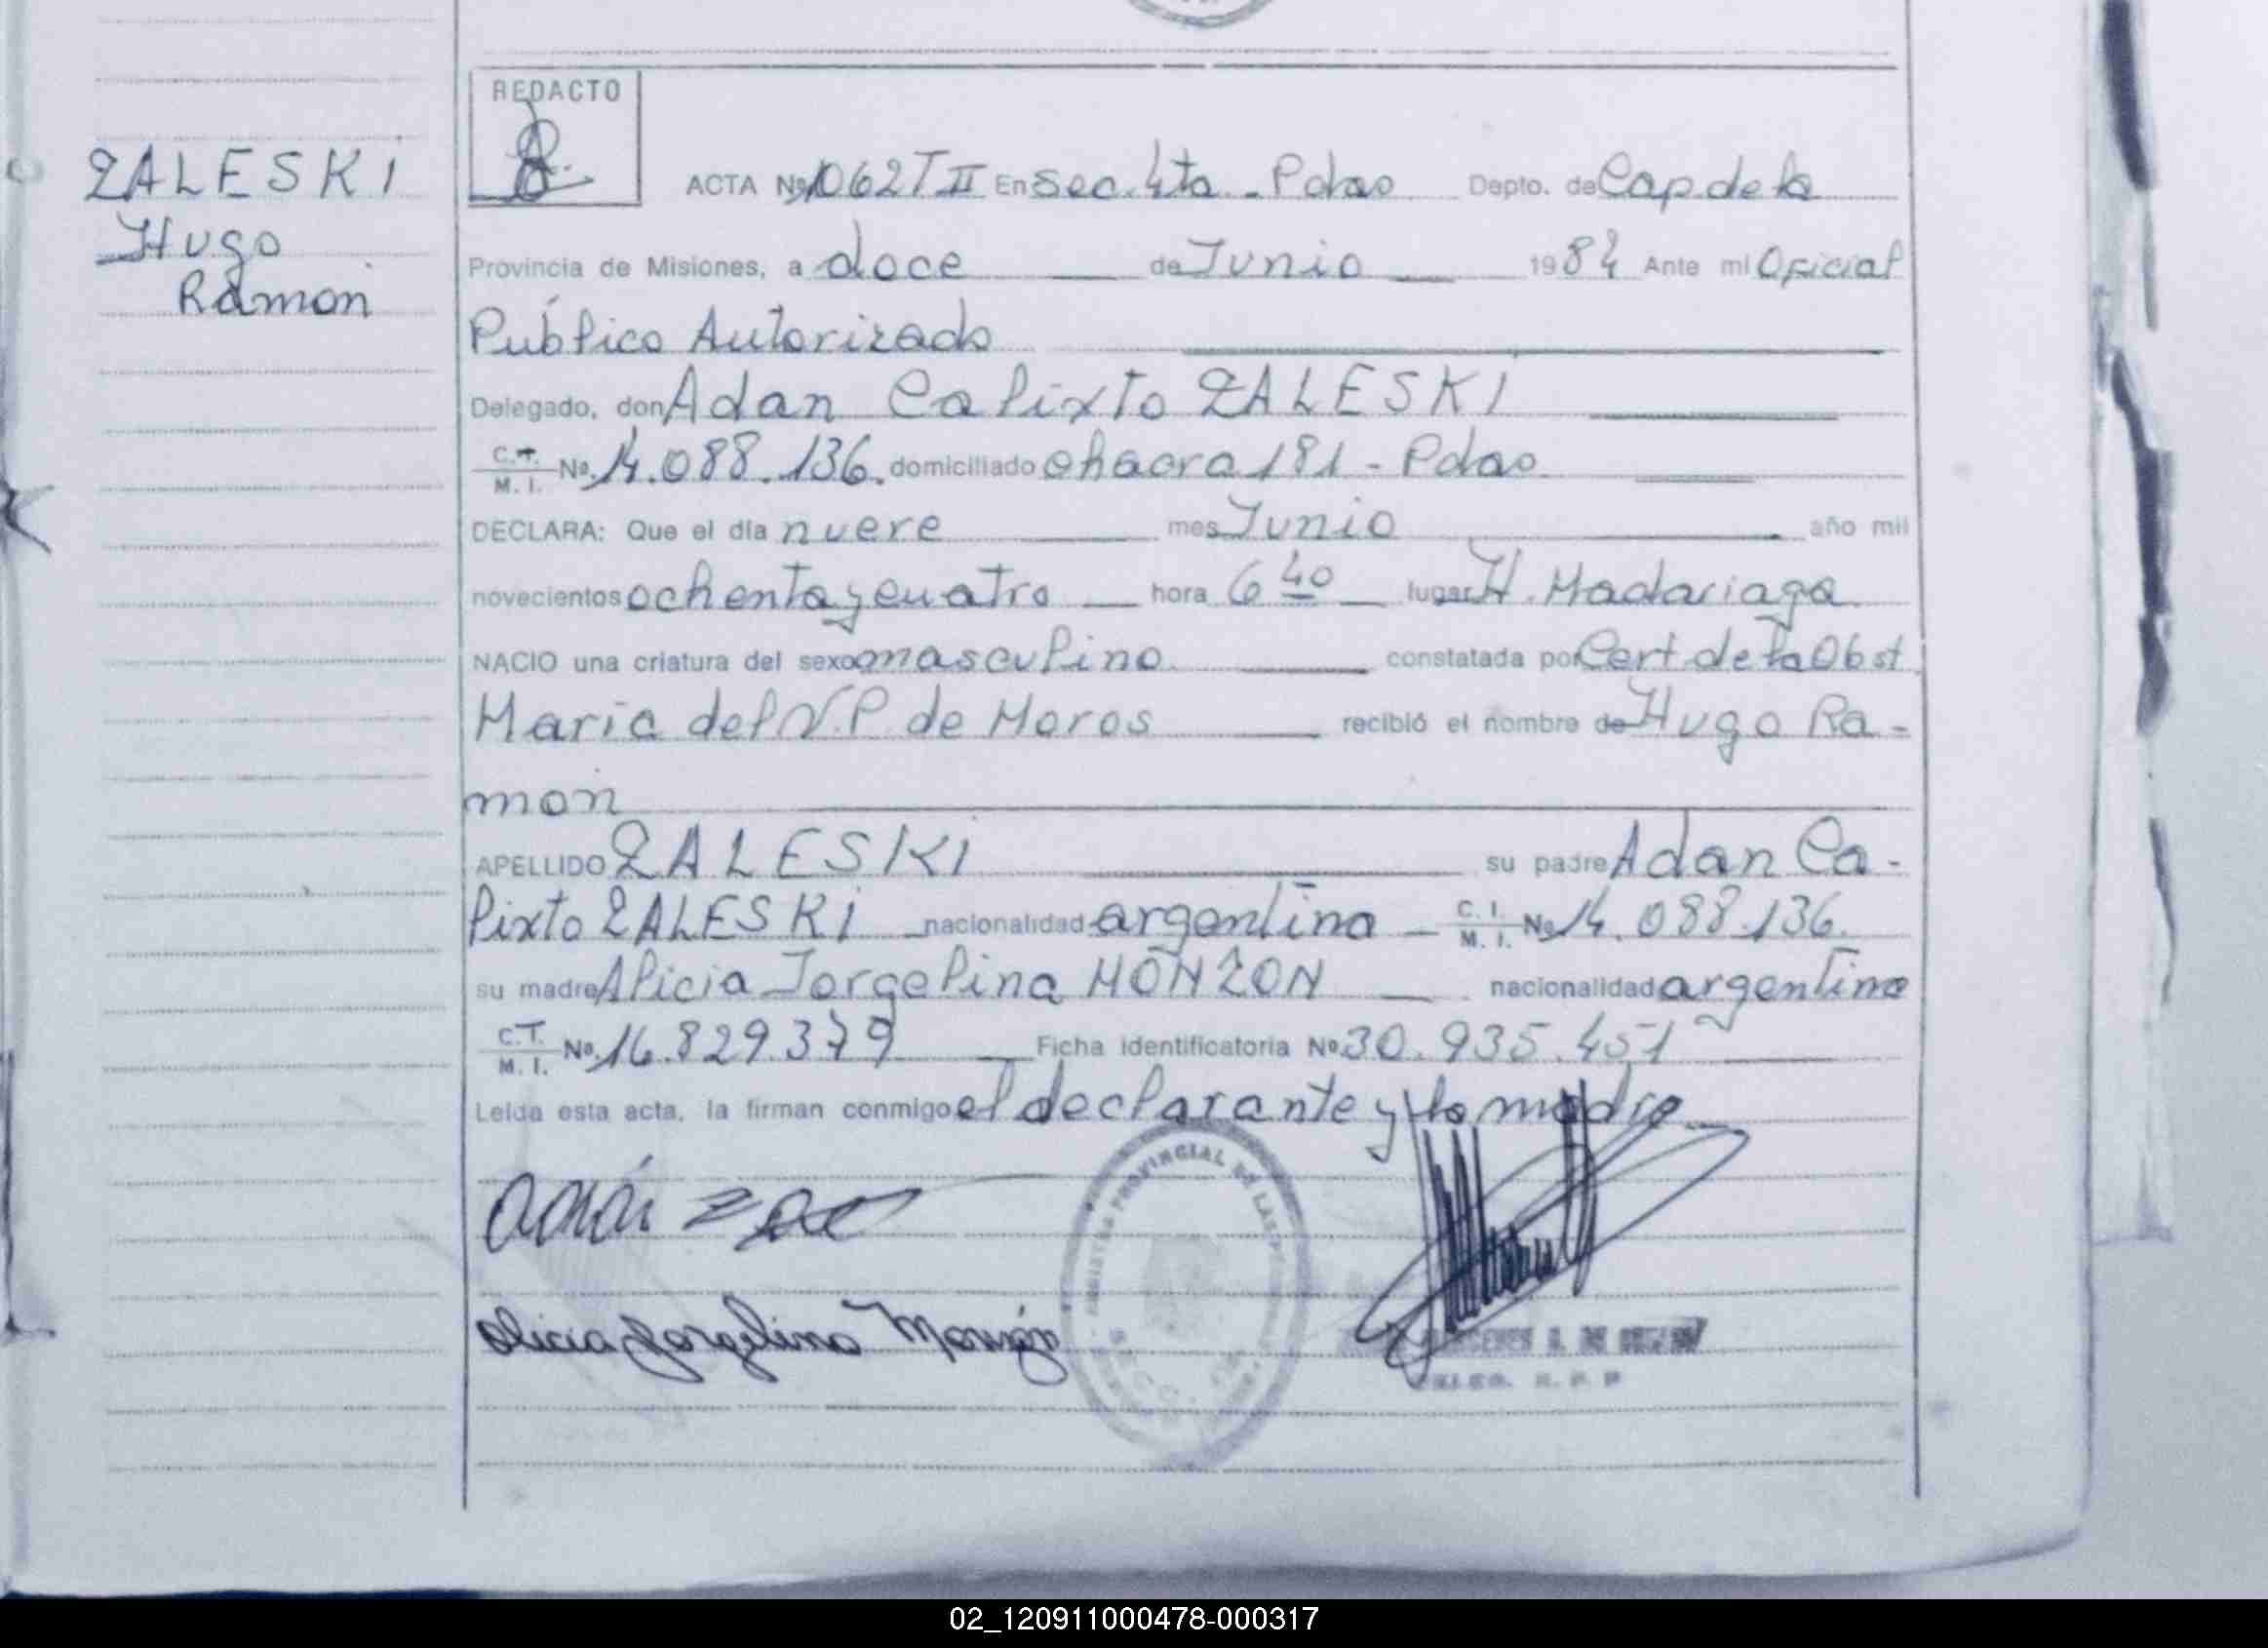 ZALESKI
Hugo
Ramon
REDACTO
ACTA Nº 1062 T II En Sec. 4ta - Pdas Depto. de Cap. de la
Provincia de Misiones, a doce de Junio 1984 Ante mi Oficial
Público Autorizado
Delegado, don Adan Calixto ZALESKI
C.I. M. I. Nº 14.088.136. domiciliado chacra 181 - Pdas
DECLARA: Que el día nueve mes Junio año mil
novecientos ochenta y cuatro hora 6 40 lugar H. Madariaga
NACIO una criatura del sexo masculino constatada por Cert. de la Obst
Maria del V.P. de Moros recibió el nombre de Hugo Ra-
mon
APELLIDO ZALESKI su padre Adan Ca-
lixto ZALESKI nacionalidad argentina C. I. M. I. Nº 14.088.136.
su madre Alicia Jorgelina MONZON nacionalidad argentina
C.I. M. I. Nº 16.829.379 Ficha identificatoria Nº 30.935.451
Leída esta acta, la firman conmigo el declarante y la madre
REGISTRO PROVINCIAL DE LAS
Alicia Jorgelina Monzón
02_120911000478-000317